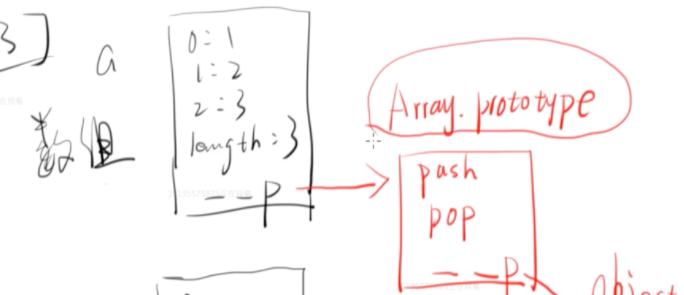 3]
a
数组
0:1
1:2
2:3
length:3
__p
Array.prototype
push
pop
__p
object